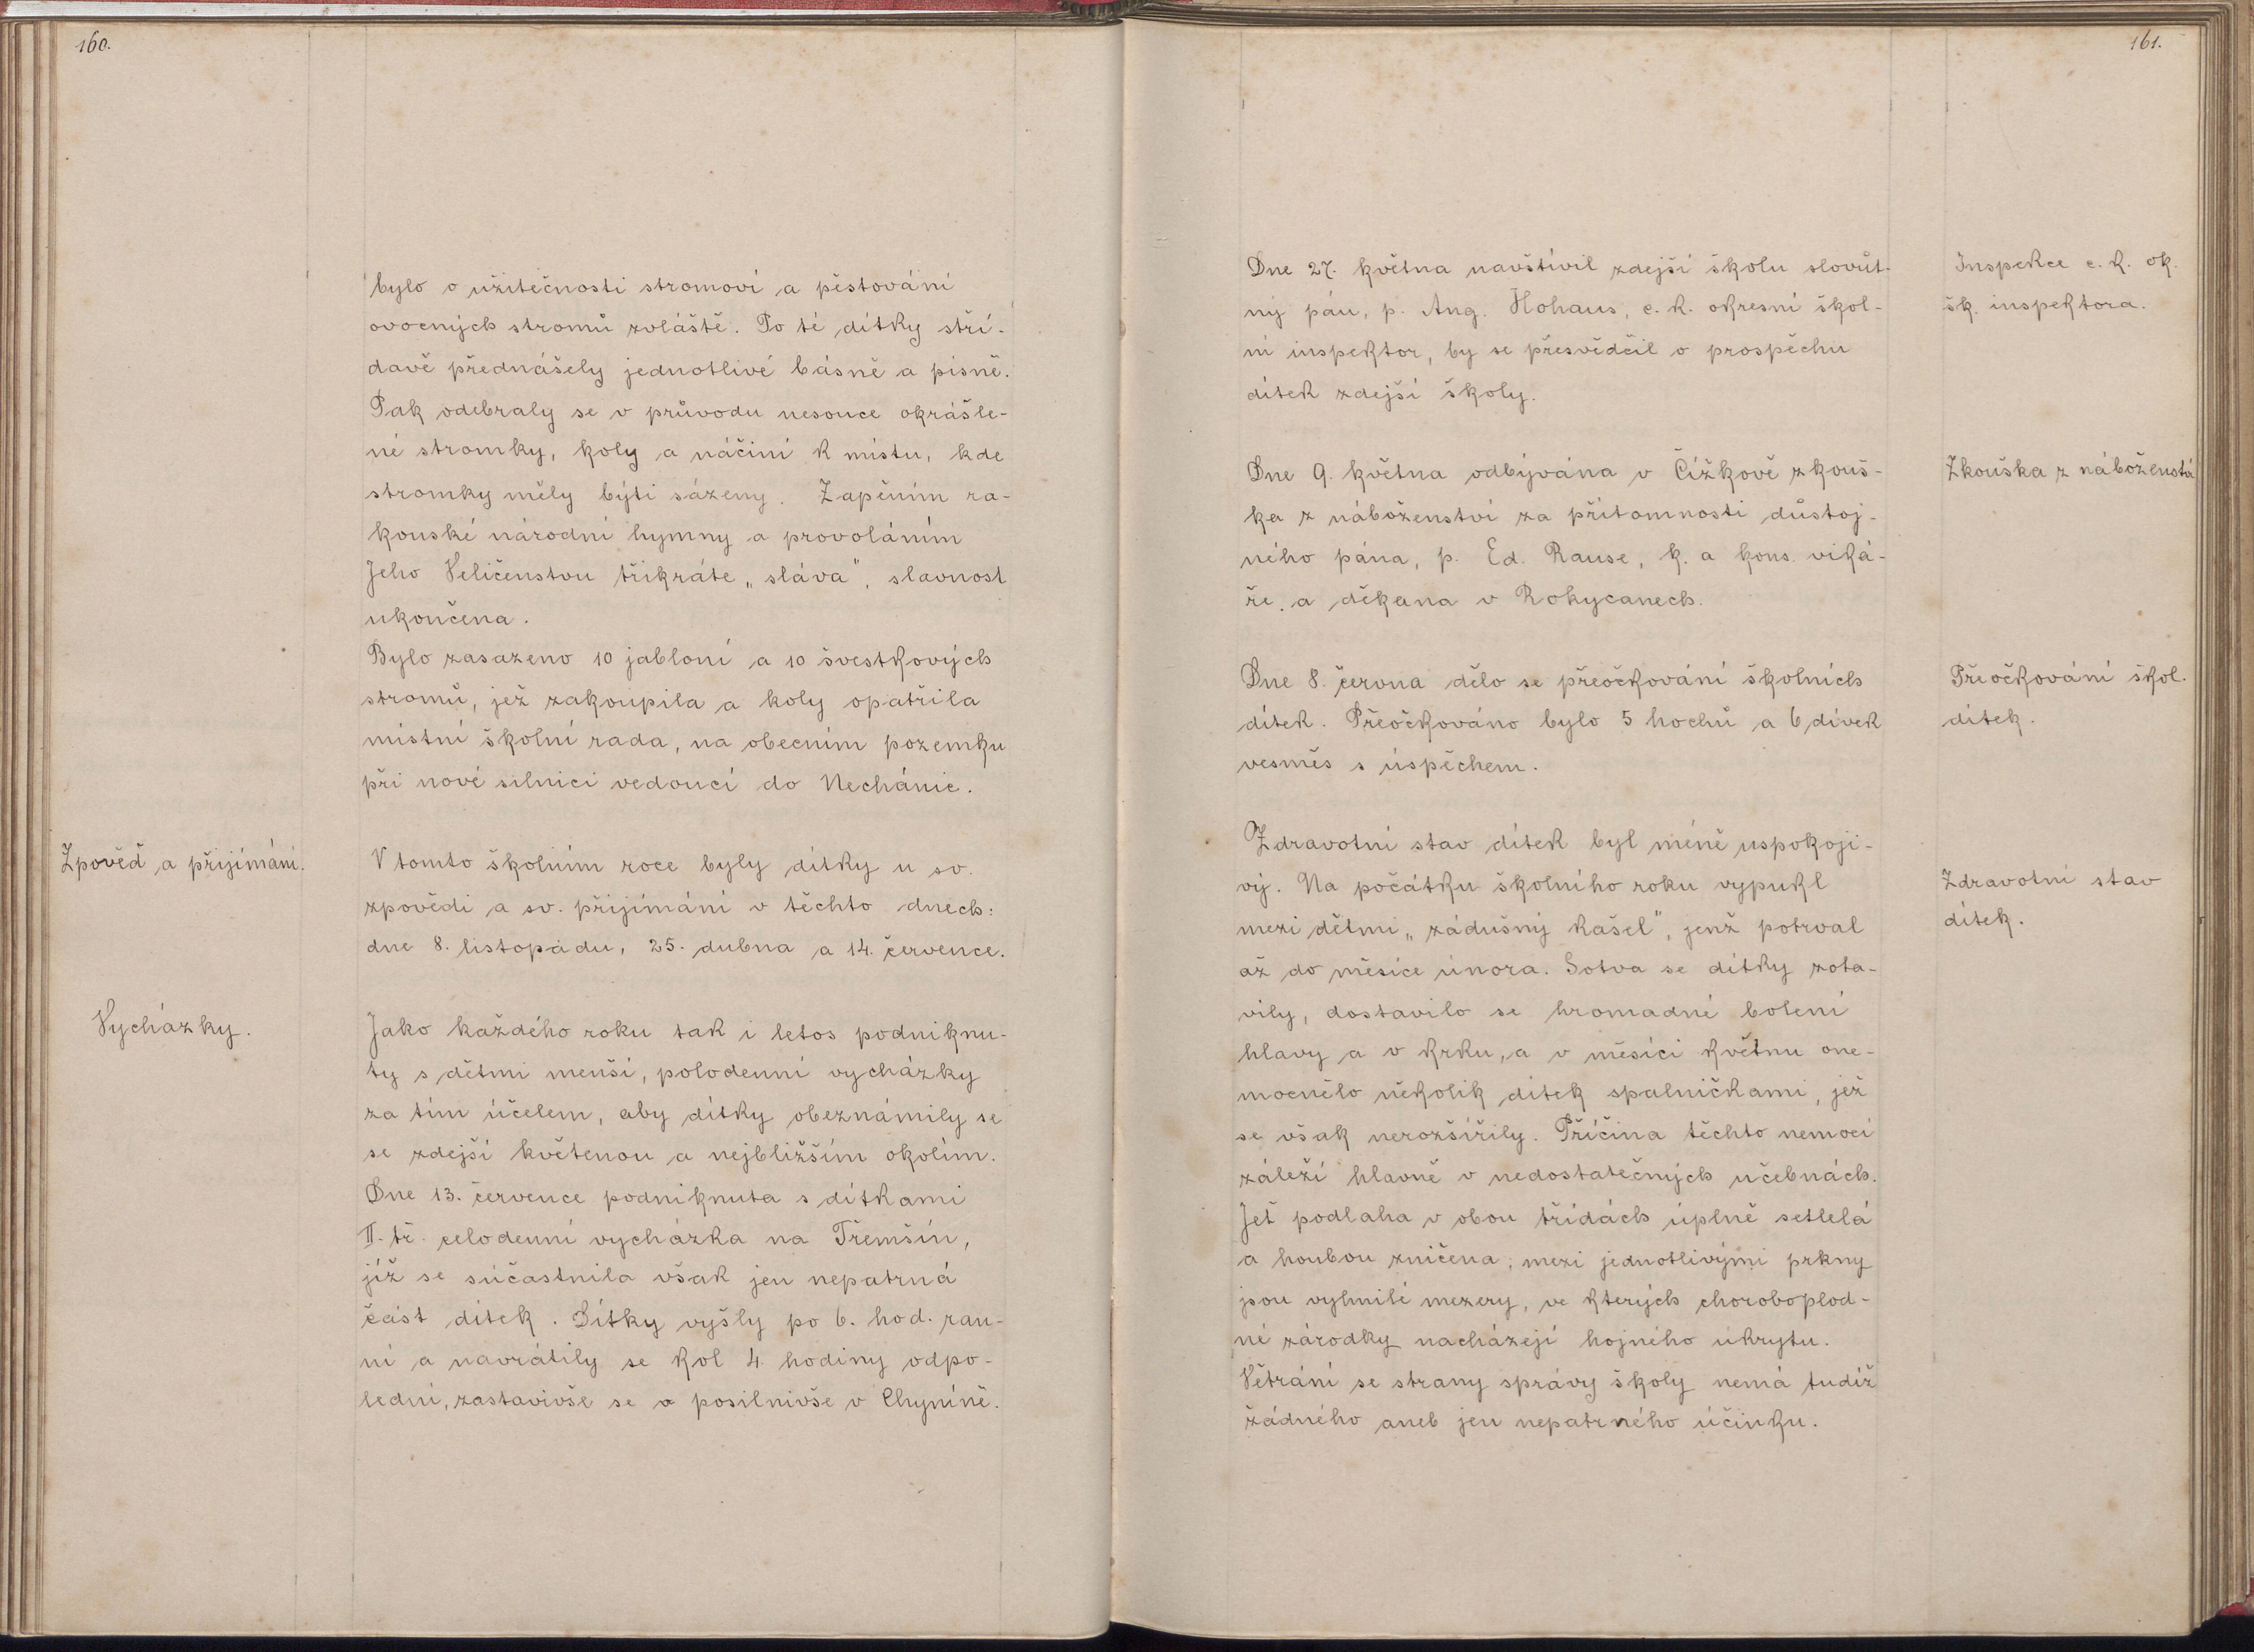 160.
bylo o užitečnosti stromoví a pěstování
ovocných stromů zvláště. Po té dítky stří-
davě přednášely jednotlivé básně a písně.
Pak odebraly se v průvodu nesouce okrášle-
né stromky, koly a náčiní k místu, kde
stromky měly býti sázeny. Zapěním ra-
kouské národní hymny a provoláním
Jeho Veličenstvu třikráte „sláva", slavnost
ukončena.
Bylo zasazeno 10 jabloní a 10 švestkových
stromů, jež zakoupila a koly opatřila
místní školní rada, na obecním pozemku
při nové silnici vedoucí do Nechánic.
Zpověď a přijímání.
V tomto školním roce byly dítky u sv.
zpovědi a sv. přijímání v těchto dnech:
dne 8. listopadu, 25. dubna a 14. července.
Vycházky.
Jako každého roku tak i letos podniknu-
ty s dětmi menší, polodenní vycházky
za tím účelem, aby dítky obeznámily se
se zdejší květenou a nejbližším okolím.
Dne 13. července podniknuta s dítkami
II. tř. celodenní vycházka na Třemšín,
jíž se súčastnila však jen nepatrná
část dítek. Dítky vyšly po 6. hod. ran-
ní a navrátily se kol 4. hodiny odpo-
lední, zastavivše se a posilnivše v Chyníně.
161.
Dne 27. května navštívil zdejší školu slovůt-
ný pán, p. Aug. Hohaus, c. k. okresní škol-
ní inspektor, by se přesvědčil o prospěchu
dítek zdejší školy.
Inspekce c. k. ok.
šk. inspektora.
Dne 9. května odbývána v Čížkově zkouš-
ka z náboženství za přítomnosti důstoj-
ného pána, p. Ed. Rause, k. a kons. viká-
ře a děkana v Rokycanech.
Zkouška z náboženství
Dne 8. června dělo se přeočkování školních
dítek. Přeočkováno bylo 5 hochů a 6 dívek
vesměs s úspěchem.
Přeočkování škol.
dítek.
Zdravotní stav dítek byl méně uspokoji-
vý. Na počátku školního roku vypukl
mezi dětmi „zádušný kašel", jenž potrval
až do měsíce února. Sotva se dítky zota-
vily, dostavilo se hromadné bolení
hlavy a v krku, a v měsíci květnu one-
mocnělo několik dítek spalničkami, jež
se však nerozšířily. Příčina těchto nemocí
záleží hlavně v nedostatečných učebnách.
Jeť podlaha v obou třídách úplně setlelá
a houbou zničena; mezi jednotlivými prkny
jsou vyhnilé mezery, ve kterých choroboplod-
né zárodky nacházejí hojného úkrytu.
Větrání se strany správy školy nemá tudíž
žádného aneb jen nepatrného účinku.
Zdravotní stav
dítek.